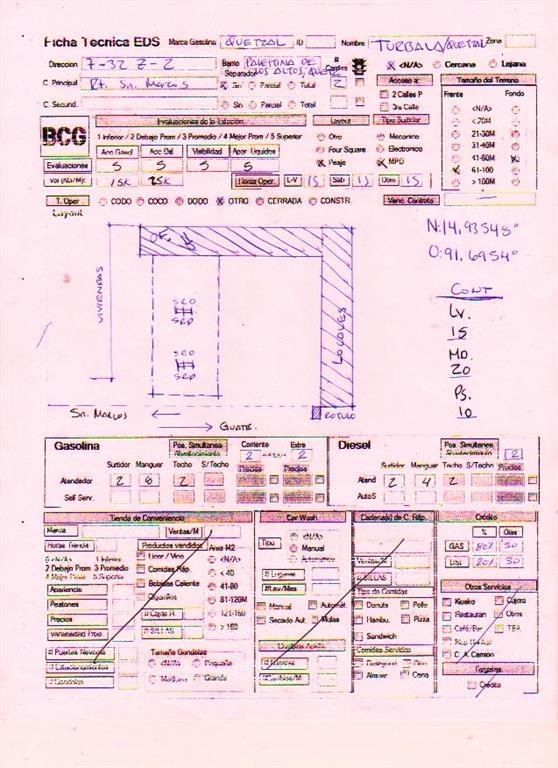 Ficha Tecnica EDS Marca Gasolina QUETZAL ID Nombre TURBALA/QUETZAL Zona
Direccion 7-32 Z-2 Barrio PALESTINA DE LOS ALTOS, # Carriles <N/A> Cercana Lejana
C. Principal Rt. Sn. Marcos Separador Sin Parcial Total 2 Acceso a: Tamaño del Terreno
2 Calles P Frente Fondo
C. Secund. Sin Parcial Total 3ra Calle <N/A>
BCG Evaluaciones de la Estación Layout Tipo Surtidor < 20M
1 Inferior / 2 Debajo Prom / 3 Promedio / 4 Mejor Prom / 5 Superior Otro Mecanino 21-30M
Visibilidad Four Square Electronico 31-40M
Evaluaciones 5 5 5 5 Peaje MPD 41-60M
Vol (KG/M) 15K 25K Horas Oper. L-V 15 Sab 15 Dom 15 61-100
> 100M
T. Oper CODO COCO DODO OTRO CERRADA CONSTR. Venc. Contrato
Layout
N:14.93548°
O:91.6954°
OF.
VIVIENDAS
SRD
SRD
SRD
SRD
LOCALES
CONT
Lv.
15
Mo.
20
Ps.
10
Sn. MARCOS
GUATE.
ROTULO
Gasolina Pos. Simultanea Corriente Extra Diesel Pos. Simultanea
Abastecimiento 2 2 Abastecimiento 2
Surtidor Manguer Techo S/Techo Precios Precios Surtidor Manguer Techo S/Techo Precios
Atendedor 2 6 2 Atend 2 4 2
Self Serv. AutoS
Tienda de Conveniencia Car Wash Cadena(s) de C. Ráp. Crédito
Marca Ventas/M % Dias
Horas Tienda Productos vendidos Area M2 Tipo <N/A> GAS 80% 30
<N/A> Licor / Vino <N/A> Manual Ventas/M DSI 20% 30
2 Debajo Prom 3 Promedio Comidas Ráp. < 40 Automatico # SILLAS
Bebidas Caliente 41-80 # Lugares Tipo de Comidas Otros Servicios
Apariencia Cigarrillos 81-120M #Lav/Mes Donuts Pollo Kiosko Cajero
Peatones # Cajas R 121-160 Manual Automát. Hambu. Pizza Restauran Otros
Precios # SILLAS > 160 Secado Aut. Mulas Sandwich TBA
Variabilidad Prod.
# Puertas Nevera Tamaño Gondolas Cambio Aceite Comidas Servidas C. A. Camion
# Estacionamientos <N/A> Pequeña Tarjetas
# Gondolas Mediana Grande #Cambios/M Almuer Cena Crédito